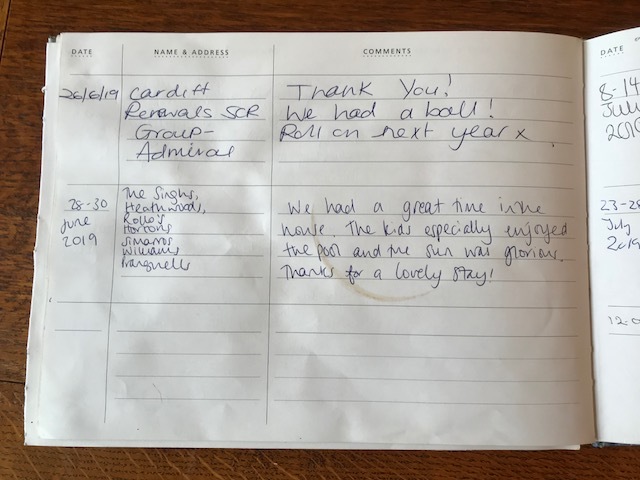 DATE NAME & ADDRESS COMMENTS
26/6/19 Cardiff Thank You!
Renewals SCR We had a ball!
Group- Roll on next year x
Admiral
28-30 The Singhs, We had a great time in the
June Heathwoods, house. The kids especially enjoyed
2019 Rollo's the pool and the sun was glorious.
Hortons Thanks for a lovely stay!
Simarros
Williams
Pranguells
DATE
8-14
July
2019
23-28
July
2019
12-0